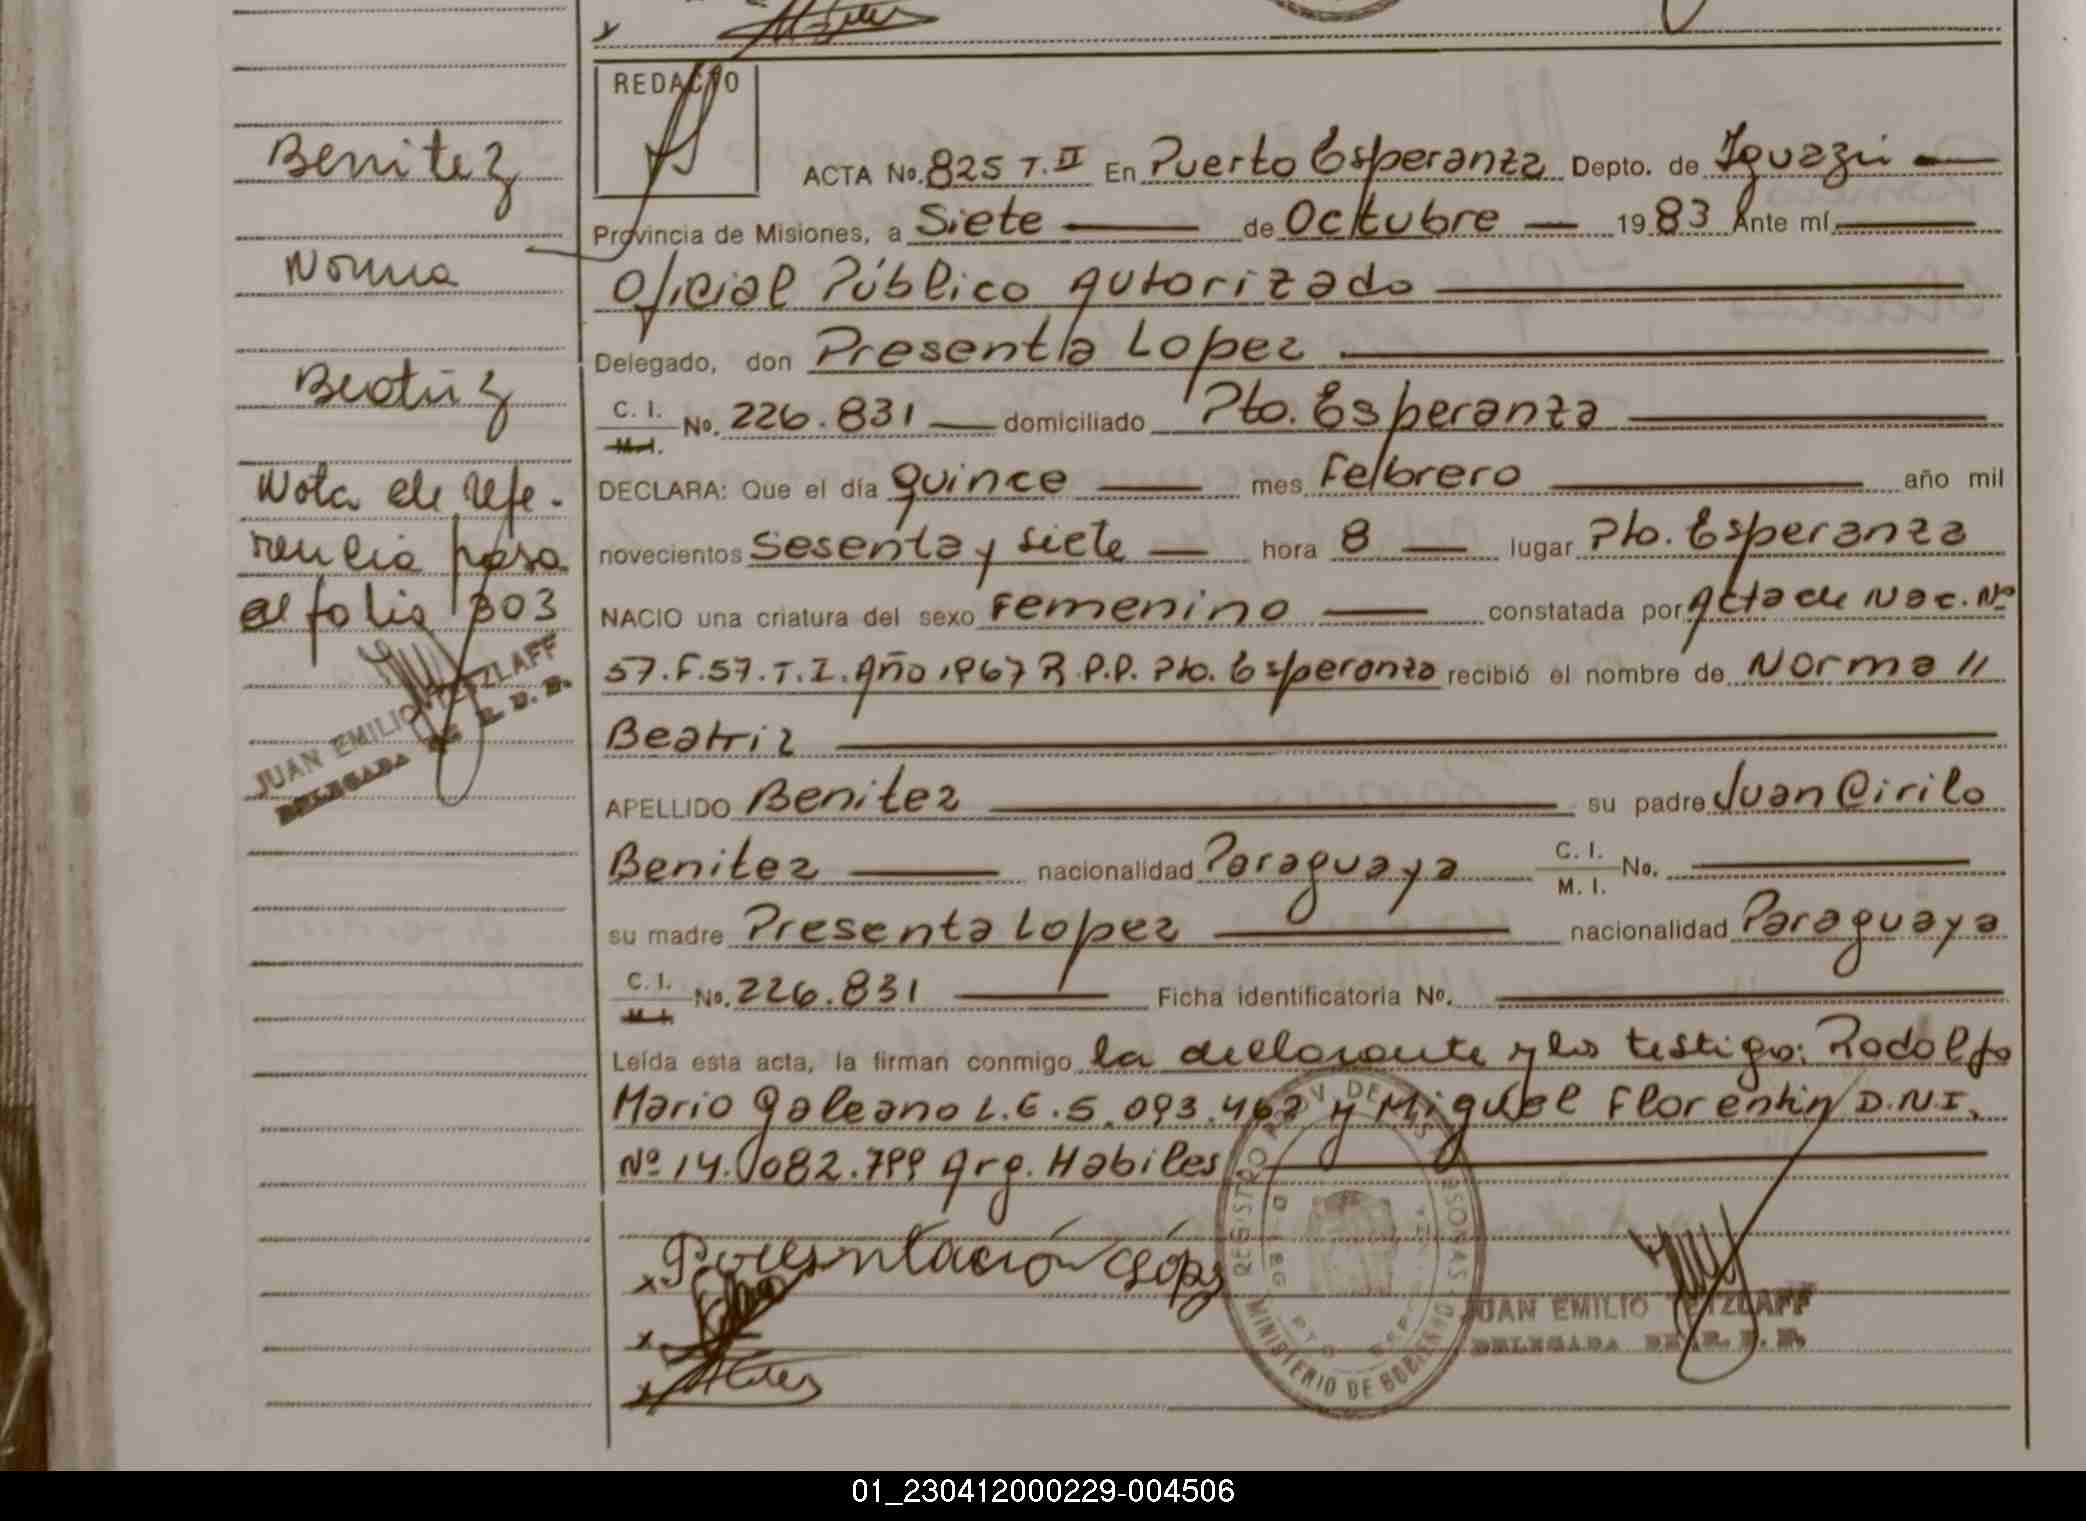 REDACTO
ACTA No. 825 T. II En Puerto Esperanza Depto. de Iguazú
Provincia de Misiones, a Siete de Octubre 1983 Ante mí
Oficial Público Autorizado
Delegado, don Presenta Lopez
C. I. M.I. No. 226.831 domiciliado Pto. Esperanza
DECLARA: Que el día quince mes Febrero año mil
novecientos Sesenta y siete hora 8 lugar Pto. Esperanza
NACIO una criatura del sexo Femenino constatada por Acta de Nac. Nº
57. F. 57. T. I. Año 1967 R.P.P. Pto. Esperanza recibió el nombre de Norma //
Beatriz
APELLIDO Benitez su padre Juan Cirilo
Benitez nacionalidad Paraguaya C. I. M. I. No.
su madre Presenta Lopez nacionalidad Paraguaya
C. I. M.I. No. 226.831 Ficha identificatoria No.
Leída esta acta, la firman conmigo la declarante y los testigo: Rodolfo
Mario Galeano L.E. 5.093.467 y Miguel Florentin D.N.I.
Nº 14.082.799 Arg. Habiles
x Presentación López
x
x
JUAN EMILIO TETZLAFF
DELEGADA DE R. P. P.
REGISTRO PROV DE PERSONAS
MINISTERIO DE GOBIERNO
Benitez
Norma
Beatriz
Nota de refe-
rencia pasa
al folio 303
JUAN EMILIO TETZLAFF
DELEGADA DE R. P. P.
01_230412000229-004506